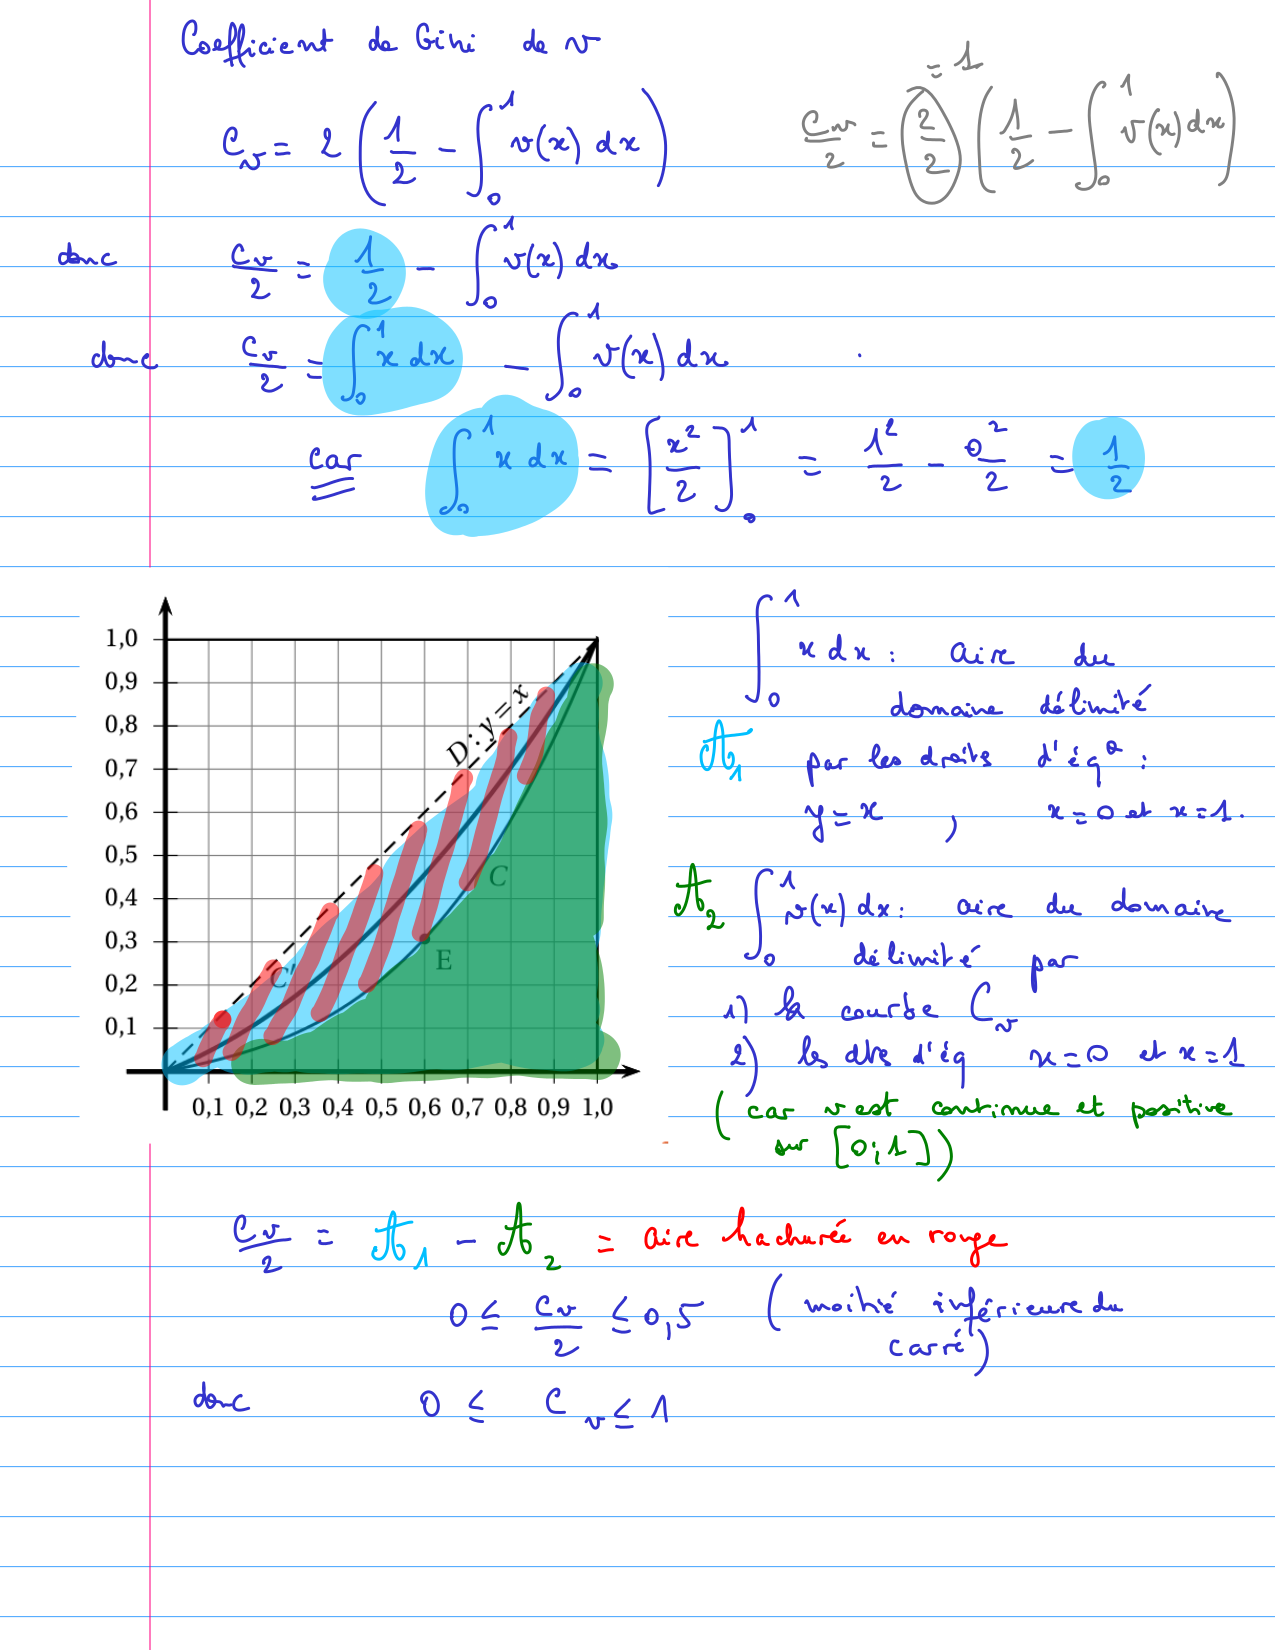 Coefficient de Gini de v
C_v = 2 ( 1/2 - ∫_0^1 v(x) dx )
C_v/2 = 2/2 ( 1/2 - ∫_0^1 v(x) dx )
= 1
donc C_v/2 = 1/2 - ∫_0^1 v(x) dx
donc C_v/2 = ∫_0^1 x dx - ∫_0^1 v(x) dx
car ∫_0^1 x dx = [ x²/2 ]_0^1 = 1²/2 - 0²/2 = 1/2
1,0
0,9
0,8
0,7
0,6
0,5
0,4
0,3
0,2
0,1
0,1 0,2 0,3 0,4 0,5 0,6 0,7 0,8 0,9 1,0
D : y = x
C
E
C'
∫_0^1 x dx : aire du
domaine délimité
A_1 par les droits d'éq° :
y = x , x = 0 et x = 1.
A_2 ∫_0^1 v(x) dx : aire du domaine
délimité par
1) la courbe C_v
2) les dtes d'éq x = 0 et x = 1
( car v est continue et positive
sur [0;1] )
C_v/2 = A_1 - A_2 = aire hachurée en rouge
0 ≤ C_v/2 ≤ 0,5 ( moitié inférieure du
carré )
donc 0 ≤ C_v ≤ 1